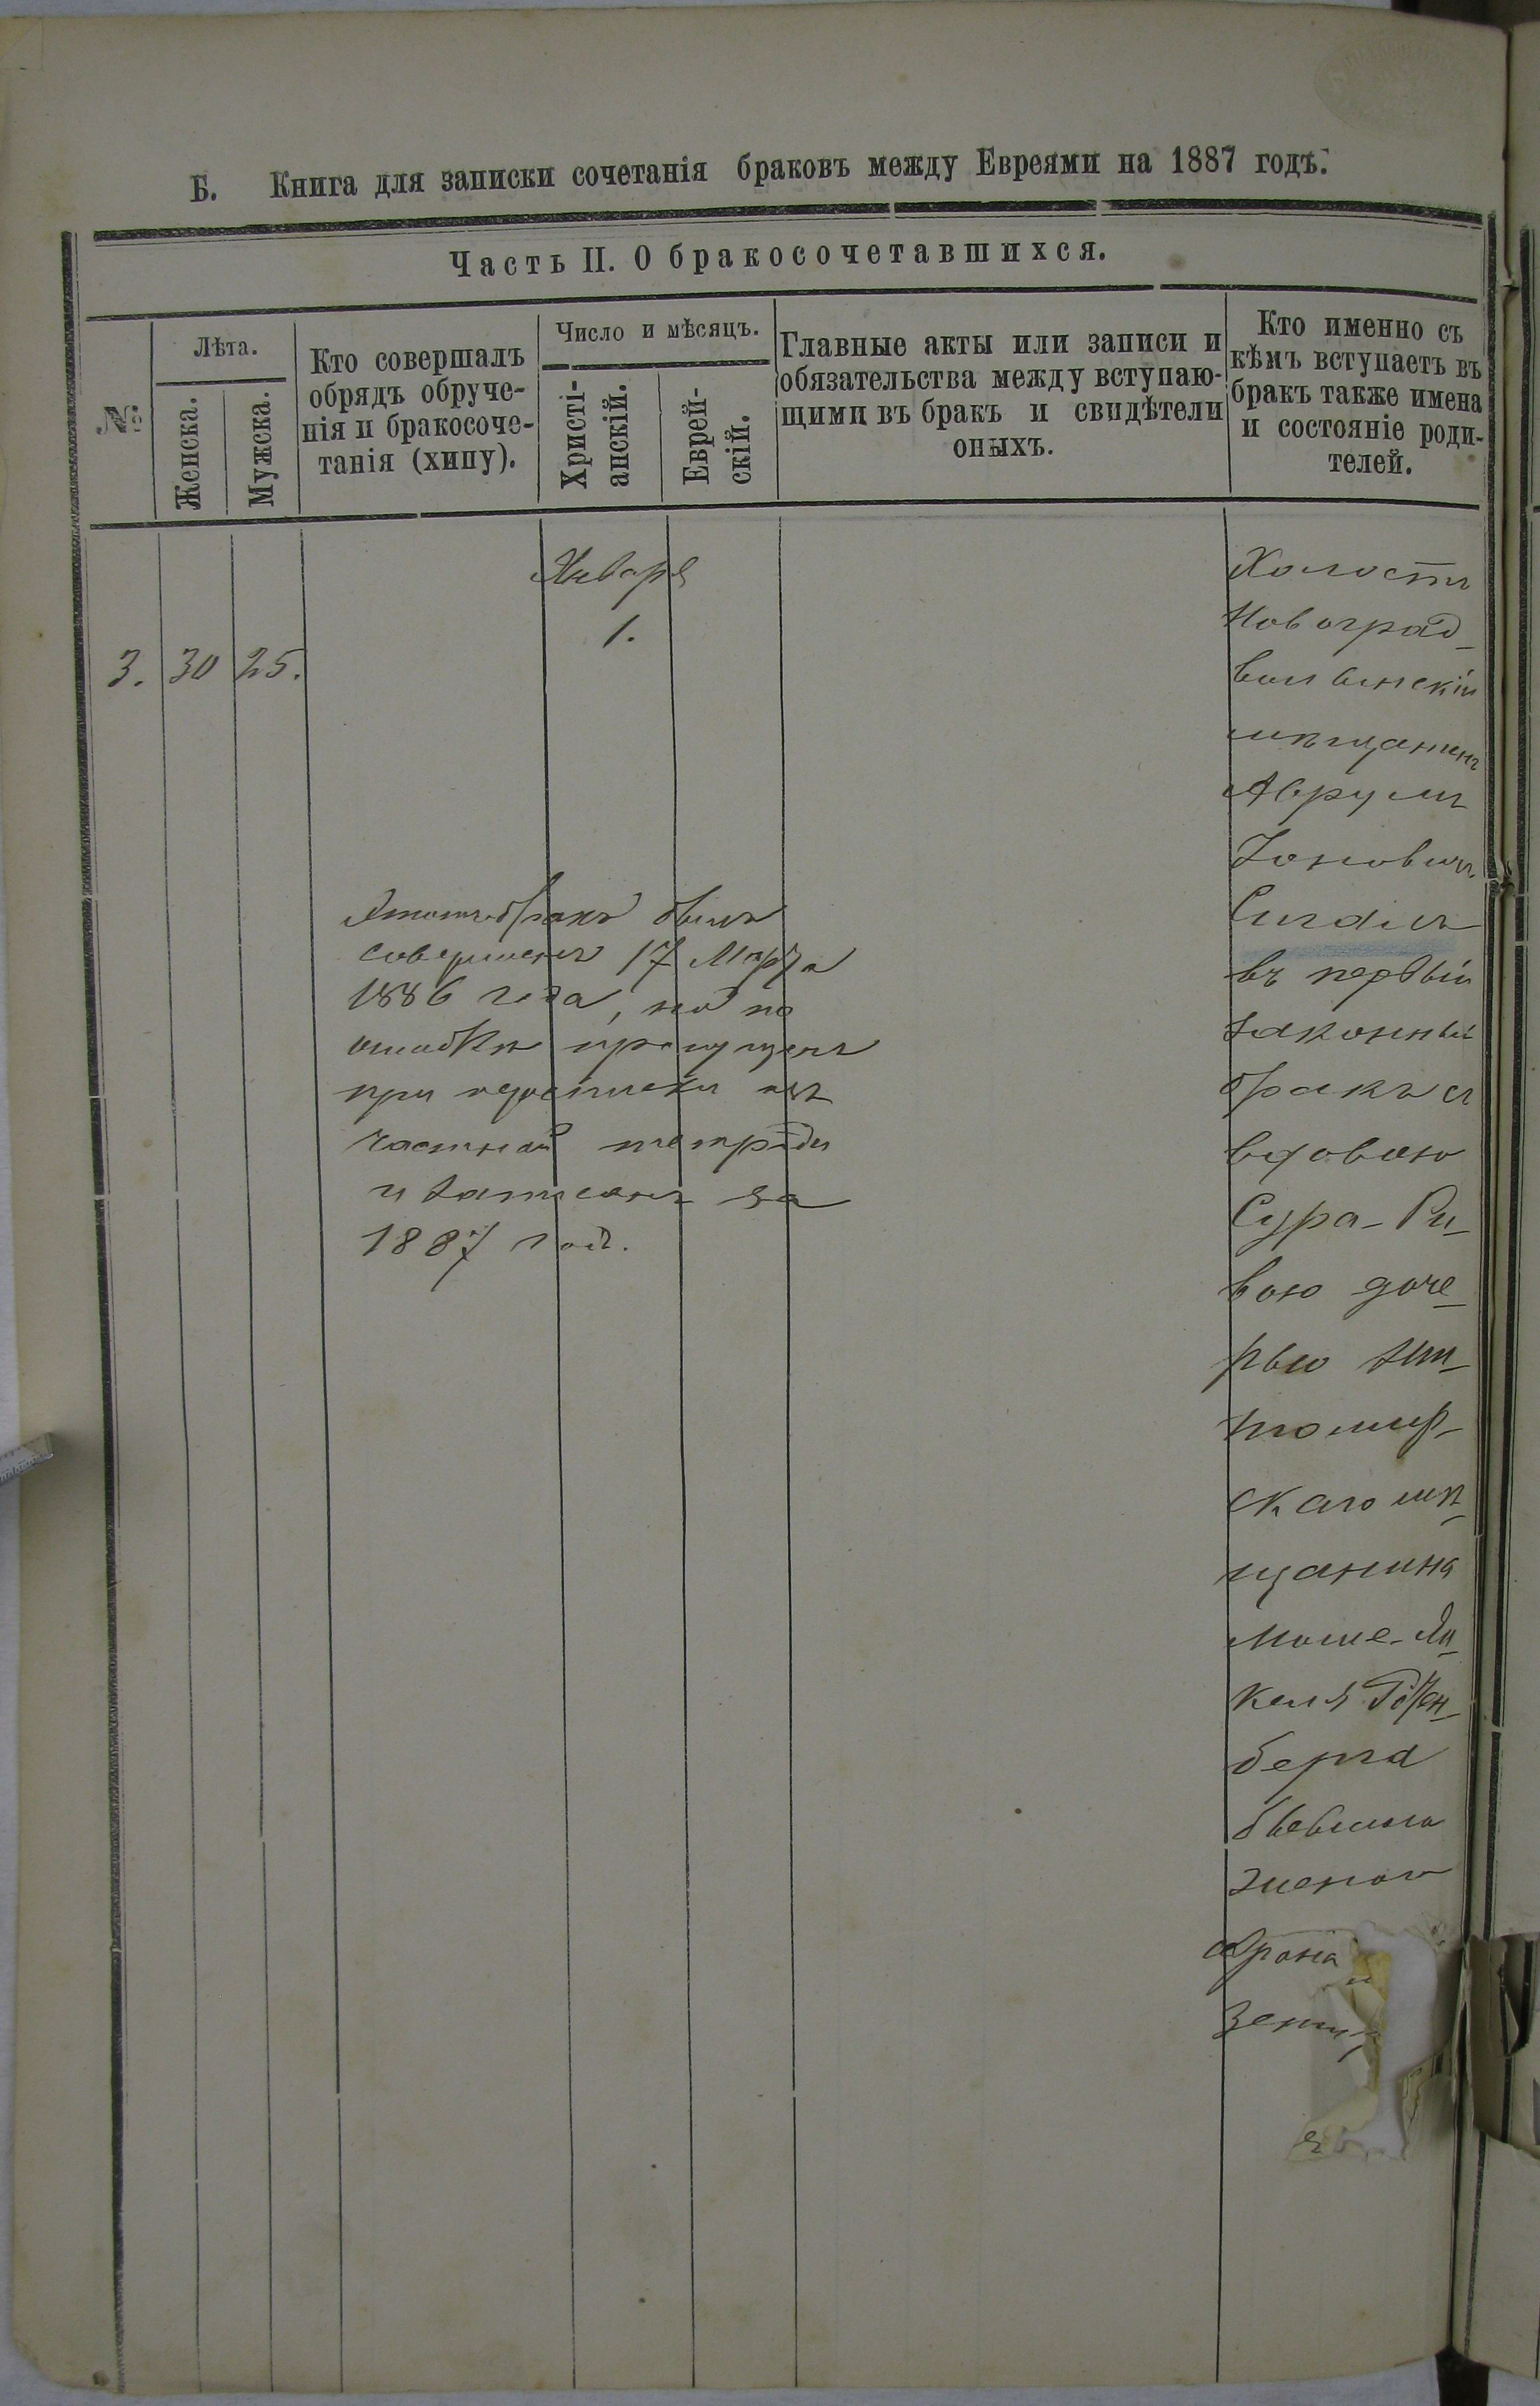 Б. Книга для записки сочетанія браковъ между Евреями на 1887 годъ.
Часть II. О бракосочетавшихся.
№
Лѣта.
Женска.
Мужска.
Кто совершалъ
обрядъ обруче-
нія и бракосоче-
танія (хипу).
Число и мѣсяцъ.
Христі-
анскій.
Еврей-
скій.
Главные акты или записи и
обязательства между вступаю-
щими въ бракъ и свидѣтели
оныхъ.
Кто именно съ
кѣмъ вступаетъ въ
бракъ также имена
и состояніе роди-
телей.
3.
30
25.
Января
1.
Этотъ бракъ былъ
совершенъ 17 Марта
1886 года, но по
ошибкѣ пропущенъ
при переписки изъ
частной тетради
и записанъ за
1887 годъ.
Холостъ
Новоград-
волынскій
мѣщанинъ
Аврумъ
Іоновичъ
въ первый
законный
бракъ съ
вдовою
Сура-Ри-
вою доче-
рью жи-
томир-
скаго мѣ-
щанина
Моше-Ян-
келя Розен-
берга
бывшая
женою
Арона